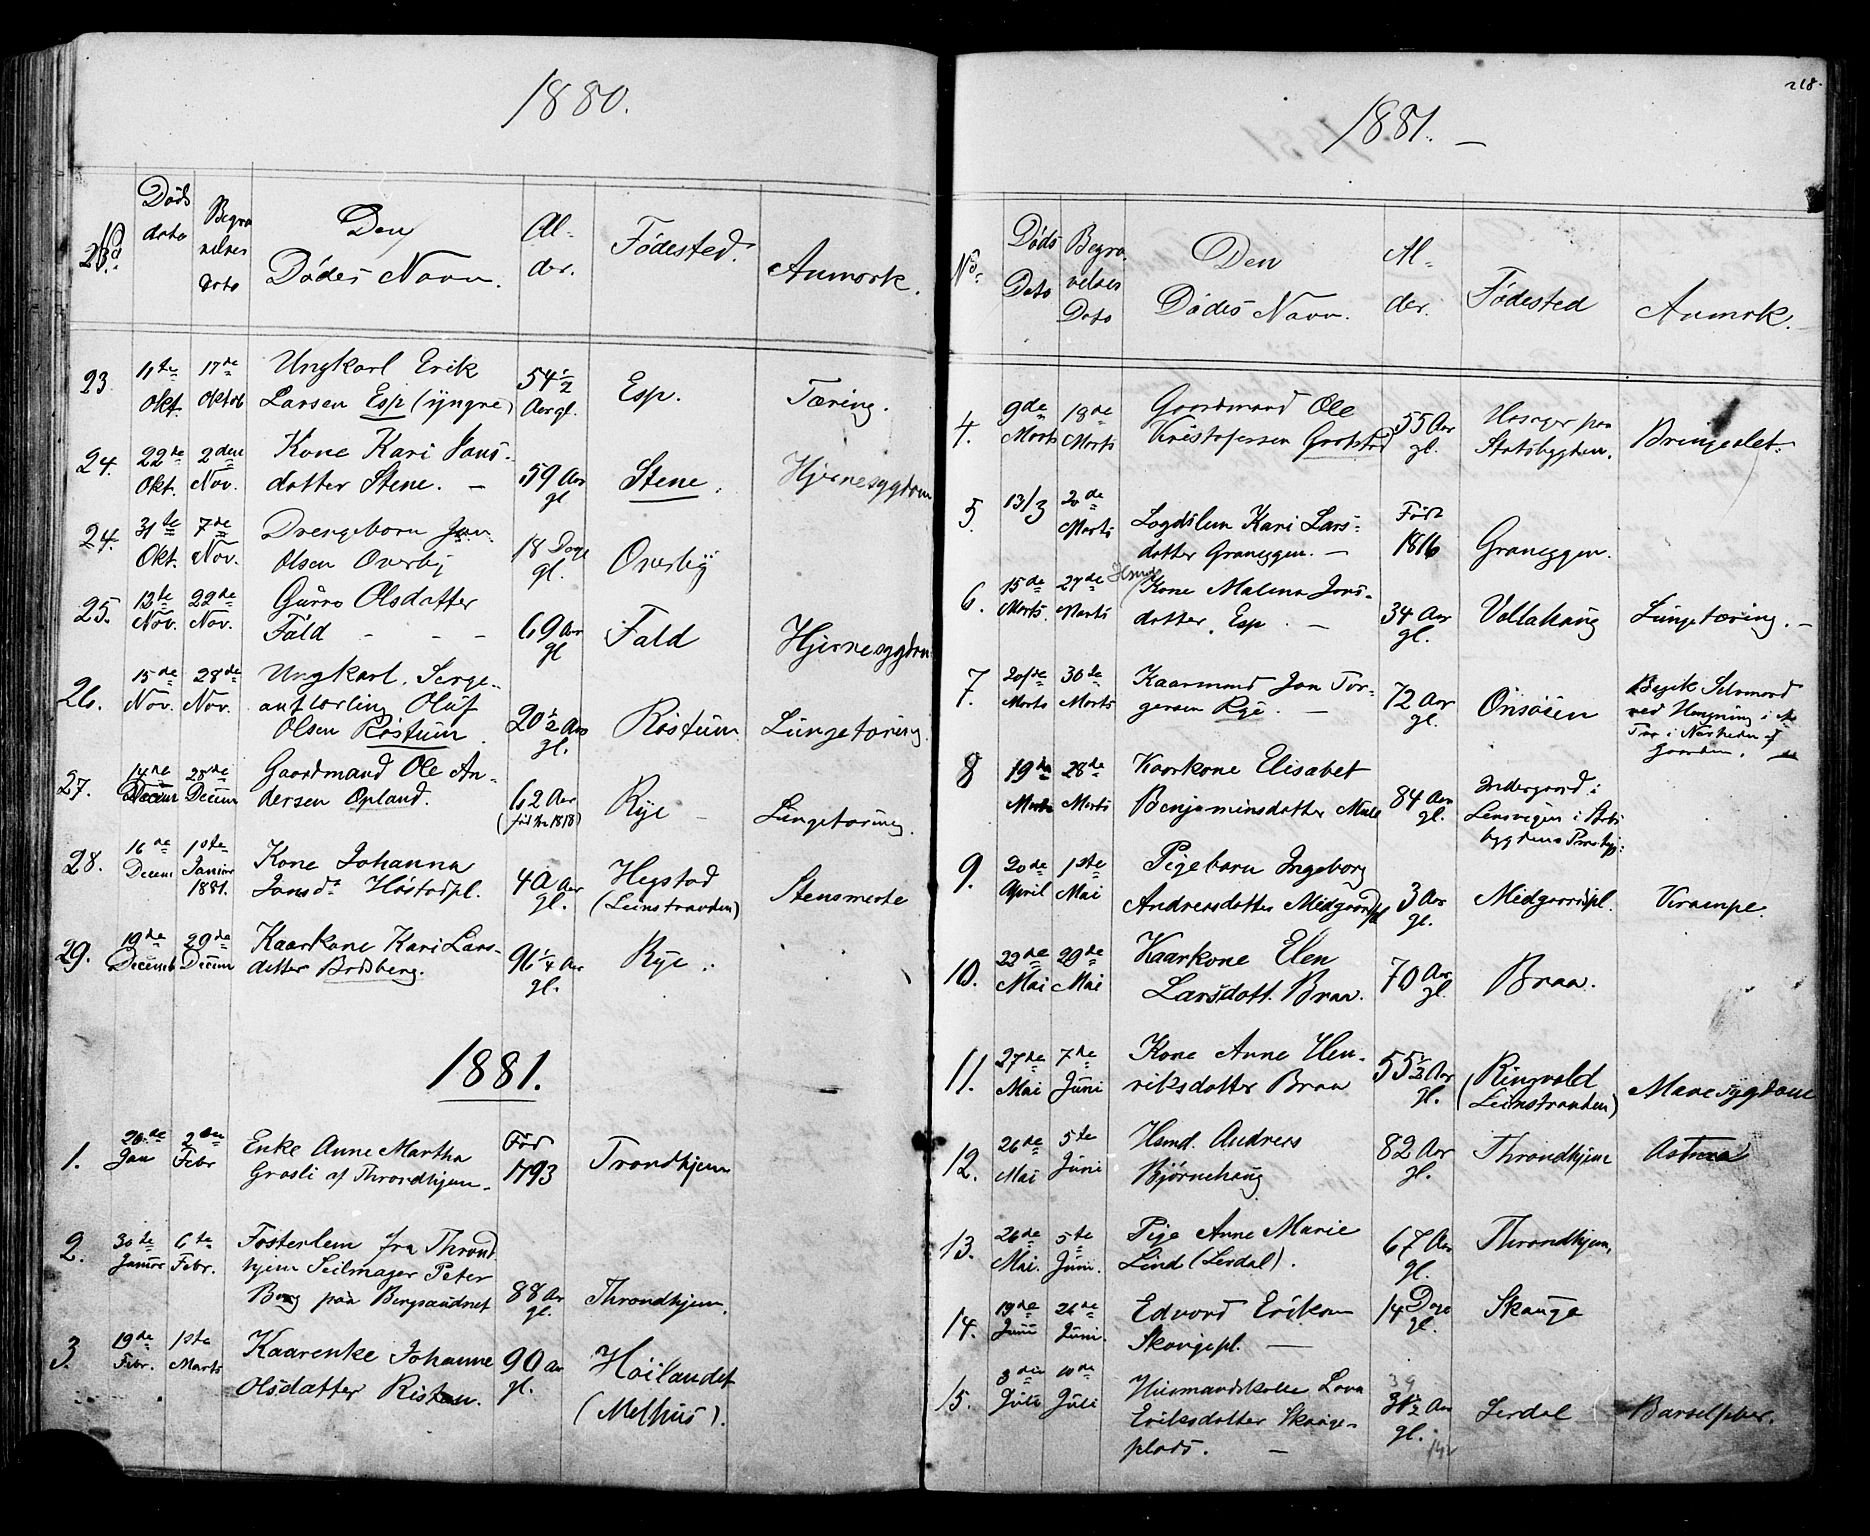 1880.
No.
Døds
dato
Begra
velses
dato
Den
Dødes Navn.
Al-
der.
Fødested.
Anmærk.
23. 11te Okt. 17de Oktob
Ungkarl Erik
Larsen Esp (yngre)
54 1/2 Aar gl.
Esp.
Tæring.
24. 22de Okt. 2den Nov.
Kone Kari Hans-
datter Stene. —
59 Aar gl
Stene.
Hjernesygdom
24. 31te Okt. 7de Nov.
Drengebarn Jon
Olsen Overby
18 Dage gl.
Overby
25. 13te Nov. 22de Nov.
Guro Olsdatter
Fald - - -
69 Aar gl
Fald
Hjernesygdom
26. 15de Nov. 28de Nov.
Ungkarl. Serge-
antlærling Oluf
Olsen Røstum.
20 1/2 Aar gl.
Røstum
Lungetæring.
27. 14de Decem 28de Decem
Gaardmand Ole An-
dersen Opland.
62 Aar
(født 1818)
Rye -
Lungetæring.
28. 16de Decem 1ste Januar 1881.
Kone Johanna
Jonsd. Høstadpl.
40 Aar gl.
Hegstad
(Leinstranden)
Stensmerte
29. 19de Decemb 29de Decem
Kaarkone Kari Lars-
datter Brodsberg.
96 1/4 Aar gl.
Rye.
1881.
1. 20de Jan 2den Febr
Enke Anne Martha
Grasli af Throndhjem.
Fød 1793
Trondhjem
2. 30te Januar 6te Febr.
Fosterlem fra Thrond
hjem Seilmager Peter
Berg paa Bergsaudnet
88 Ar gl.
Throndhjem.
3. 19de Febr. 1ste Marts
Kaarenke Johanne
Olsdatter Ristan.
90 Aar gl.
Høilandet
(Melhus).
218.
1881. —
No.
Døds
Dato
Begra
velses
Dato
Den
Dødes Navn.
Al-
der.
Fødested
Anmærk.
4. 9de Marts 18de Marts
Gaardmand Ole
Kristofersen Grotstad
55 Aar gl.
paa
Statsbygden.
Bringeslet.
5. 13/3 20de Marts
Lægdslem Kari Lars-
datter Graneggen. —
Født 1816
Graneggen.
6. 15de Marts. 27de Marts
Kone Malena Jons-
datter. Esp. —
34 Aar gl.
Voltahaug
Lungetæring. —
7. 20de Marts 30te Marts
Kaarmand Jon Tor-
gersen Rye. —
72 Aar gl.
Onsøien
Begik Selvmord
ved Hængning i et
Træ i Nærheden af
Gaarden.
8 19de Marts 28de Marts
Kaarkone Elisabet
Benjaminsdatter Mule
84 Aar gl.
Indergaard i
Lensvigen i Stads
bygdens Præstegj:
9. 20de April 1ste Mai
Pigebarn Ingeborg
Andreasdatter Midgaardpl
3 Aar gl.
Midgaardspl.
Krampe.
10. 22de Mai 29de Mai
Kaarkone Elen
Larsdatt. Braa.
70 Aar gl.
Braa.
11. 27de Mai 7de Juni
Kone Anne Hen-
riksdatter Braa
55 1/2 Aar gl.
Ringvold
(Leinstranden)
Mavesygdom
12. 26de Mai 5te Juni
Hsmd. Andreas
Bjørnehaug
82 Aar gl.
Throndhjem
Astma
13. 26de Mai. 5te Juni.
Pige Anne Marie
Lind (Lerdal).
67 Aar gl.
Throndhjem,
14. 19de Juni 26de Juni.
Edvard Eriksen
Skaugepl. —
14 Dage gl.
Skauge
15. 3die Juli 10de Juli
Husmandskone Lava
Eriksdatter Skauge-
plads. —
39
31 1/2 Aar gl.
Lerdal
Barselfeber.